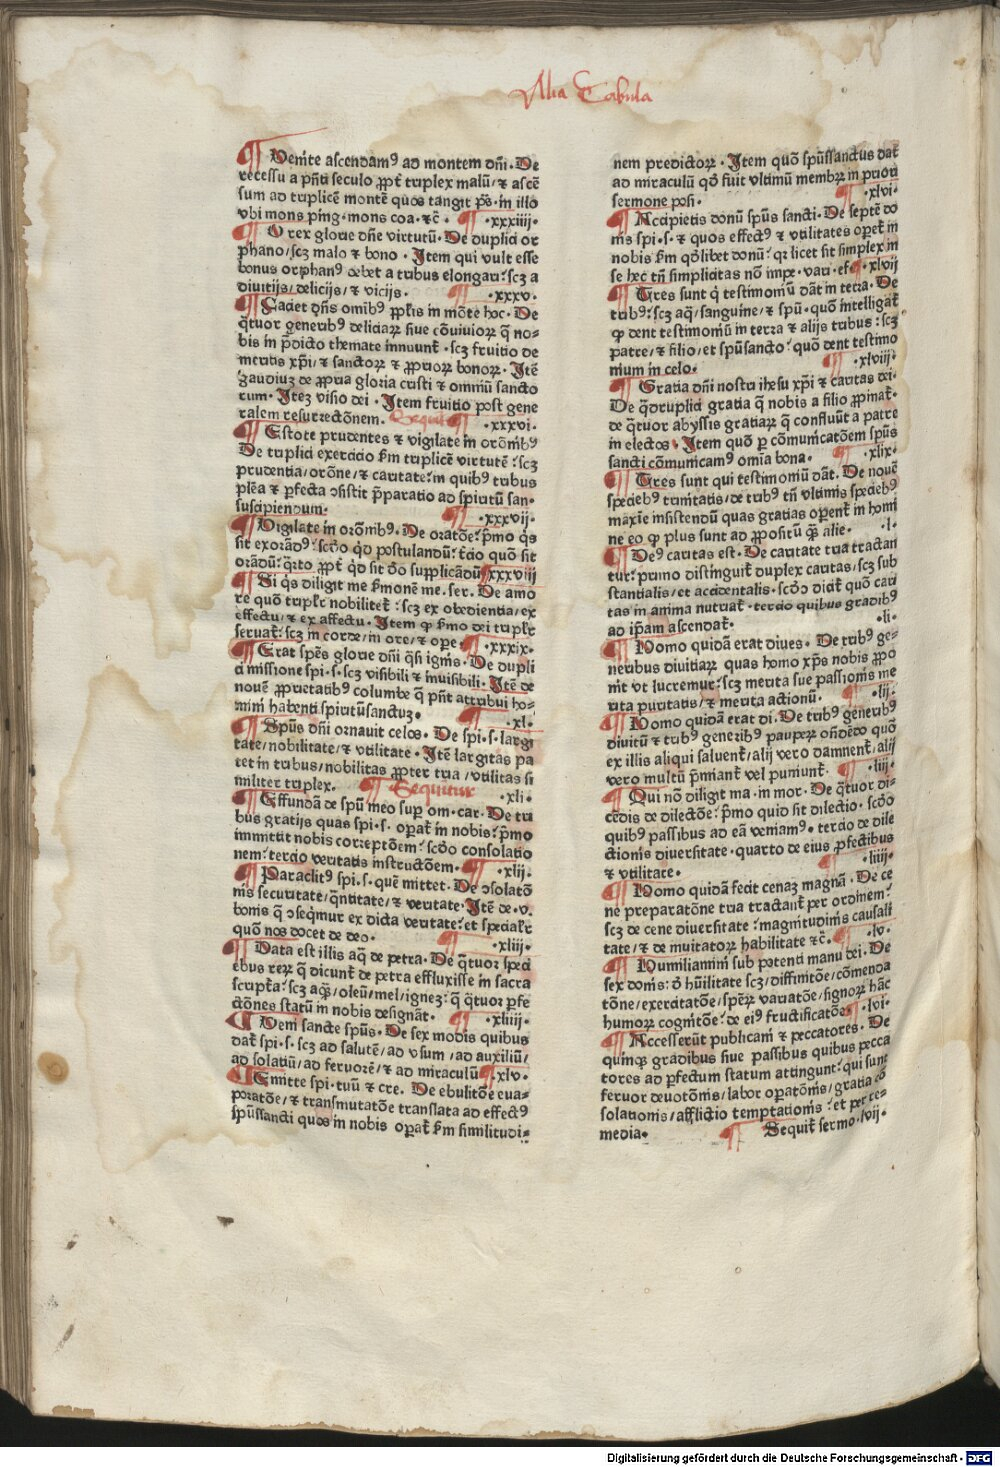 Alia Tabula
¶ Venite ascendamꝰ ad montem dn̄i. De
recessu a pn̄ti seculo ꝓpt̄ triplex malū/ ⁊ ascē
sum ad triplicē montē quos tangit pꝫs. in illo
vbi mons ping. mons coa. ⁊c̄. ¶ .xxxiiij.
¶ O rex glorie dn̄e virtutū. De duplici or
phano/scꝫ malo ⁊ bono. Item qui vult esse
bonus orphanꝰ debet a tribus elongari: scꝫ a
diuitijs/delicijs/ ⁊ vicijs. ¶ .xxxv.
¶ Faciet dn̄s omībꝰ ppl̄is in mōte hoc. De
q̄tuor generibꝰ deliciaꝝ siue cōuiuioꝝ q̄ no-
bis in p̄dicto themate innuunt̄. scꝫ fruitio de
meritis xp̄i/ ⁊ sanctoꝝ ⁊ ꝓprioꝝ bonoꝝ. Itē
gaudiuꝫ de ꝓpria gloria cristi ⁊ omniū sancto
rum. Iteꝫ visio dei. Item fruitio post gene
ralem resurrectōnem. Sequit̄ ¶ .xxxvi.
¶ Estote prudentes ⁊ vigilate in orōnibꝰ
De triplici exercicio ẜm triplicē virtutē: scꝫ
prudentia/orōne/ ⁊ caritate: in quibꝰ tribus
plēa ⁊ ꝑfecta ↄsistit p̄paratio ad spiritū san-
suscipiendum. ¶ .xxxvij.
¶ Vigilate in orōnibꝰ. De oratōe: p̄mo q̄s
sit exorādꝰ: scd̄o qd̄ postulandū: t̄cio quō sit
orādū: q̄rto ꝓpt̄ qd̄ sit dō supplicādū ¶ .xxxviij
¶ Si q̄s diligit me ẜmonē me. ser. De amo
re quō triplr̄ nobilitet̄: scꝫ ex obedientia/ex
effectu/ ⁊ ex affectu. Item ꝙ ẜmo dei triplr̄
seruat̄: scꝫ in corde/in ore/ ⁊ ope. ¶ .xxxix.
¶ Erat spēs glorie dn̄i q̄si ignis. De dupli
ci missione spi. s. scꝫ visibili ⁊ inuisibili. Itē de
nouē ꝓprietatibꝰ columbe q̄ pn̄t attribui ho-
mini habenti spiritūsanctuꝫ. ¶ .xl.
¶ Spūs dn̄i ornauit celos. De spi. s. largi
tate/nobilitate/ ⁊ vtilitate. Itē largitas pa
tet in tribus/nobilitas ꝓpter tria/vtilitas si
militer triplex. ¶ Sequitur .xli.
¶ Effundā de spū meo suꝑ om. car. De tri
bus gratijs quas spi. s. opat̄ in nobis: p̄mo
immittit nobis correptōem: scd̄o consolatio
nem: tercio veritatis instructōem. ¶ .xlij.
¶ Paraclitꝰ spi. s. quē mittet. De ↄsolatō
nis securitate/q̄ntitate/ ⁊ veritate. Itē de. v.
bonis q̄ ↄseq̄mur ex dicta veritate: et specialr̄
quō nos docet de deo. ¶ .xliij.
¶ Data est illis aq̄ de petra. De q̄tuor speci
ebus reꝝ q̄ dicunt̄ de petra effluxisse in sacra
scriptā: scꝫ aq̄/oleū/mel/igneꝫ: q̄ q̄tuor ꝑfe
ctōnes statū in nobis designāt. ¶ .xliiij.
¶ Veni sancte spūs. De sex modis quibus
dat̄ spi. s. scꝫ ad salutē/ad vsum/ad auxiliū/
ad solatiū/ad feruorē/ ⁊ ad miraculū ¶ .xlv.
¶ Emitte spi. tuū ⁊ cre. De ebulitōe eua-
poratōe/ ⁊ transmutatōe translata ad effectꝰ
spūssancti quos in nobis opat̄ ẜm similitudi-
nem predictoꝝ. Item quō spūssanctus dat̄
ad miraculū qd̄ fuit vltimū membꝝ in priori
sermone posi. ¶ .xlvi.
¶ Accipietis donū spūs sancti. De septē do
nis spi. s. ⁊ quos effectꝰ ⁊ vtilitates opet̄ in
nobis ẜm qd̄libet donū: qꝛ licet sit simplex in
se hec tn̄ simplicitas nō impe. vari. ef. ¶ .xlvij
¶ Tres sunt q̄ testimoniū dāt in terra. De
tribꝰ: scꝫ aq̄/sanguine/ ⁊ spū. quō intelligāt̄
ꝙ dent testimoniū in terra ⁊ alijs tribus: scꝫ
patre/ ⁊ filio/et spūsancto: quō dent testimo
nium in celo. ¶ .xlviij.
¶ Gratia dn̄i nostri ihesu xp̄i ⁊ caritas dei.
De q̄druplici gratia q̄ nobis a filio ꝓpinat̄.
de q̄tuor abyssis gratiaꝝ q̄ confluūt a patre
in electos. Item quō ꝑ cōmunicatōem spūs
sancti cōmunicamꝰ omīa bona. ¶ .xlix.
¶ Tres sunt qui testimoniū dāt. De nouē
speciebꝰ trinitatis/de tribꝰ tn̄ vltimis speciebꝰ
maxīe insistendū quas gratias operent̄ in homi
ne eo ꝙ plus sunt ad ꝓpositū q̄ꝫ alie. .l.
¶ Deꝰ caritas est. De caritate tria tractan
tur: primo distinguit̄ duplex caritas/scꝫ sub
stantialis/et accidentalis. scd̄o dicit̄ quō cari
tas in anima nutriat̄. tercio quibus gradibꝰ
ad ip̄am ascendat̄. .li.
¶ Homo quidā erat diues. De tribꝰ ge-
neribus diuitiaꝝ quas homo xp̄s nobis ꝓpo
nit vt lucremur: scꝫ merita sue passionis me
rita puritatis/ ⁊ merita actionū. ¶ .lij.
¶ Homo quidā erat di. De tribꝰ generibꝰ
diuitū ⁊ tribꝰ generibꝰ paupeꝝ on̄dēdo quō
ex illis aliqui saluent̄/alij vero damnent̄/alij
vero multū p̄miant̄ vel puniunt̄. ¶ .liij.
¶ Qui nō diligit ma. in mor. De q̄tuor di-
cēdis de dilectōe: p̄mo quid sit dilectio. scd̄o
quibꝰ passibus ad eā veniamꝰ. tercio de dile
ctionis diuersitate. quarto de eius ꝓfectibus
⁊ vtilitate. ¶ .liiij.
¶ Homo quidā fecit cenaꝫ magnā. De ce
ne preparatōne tria tractant̄ per ordinem:
scꝫ de cene diuersitate: magnitudinis causali
tate/ ⁊ de inuitatoꝝ habilitate ⁊c̄. ¶ .lv.
¶ Humiliamini sub potenti manu dei. De
sex donis: d̄ hūilitate scꝫ/diffinitōe/cōmenda
tōne/exercitatōe/speꝝ variatōe/signoꝝ hāc
humoꝝ cognitōe: de eiꝰ fructificatōe. ¶ .lvi.
¶ Accesserūt publicani ⁊ peccatores. De
quinqꝫ gradibus siue passibus quibus pecca
tores ad ꝑfectum statum attingunt: qui sunt
feruor deuotōnis/labor operatōnis/gratia cō
solationis/afflictio temptationis: et pet re-
media. ¶ Sequit̄ sermo .lvij.
Digitalisierung gefördert durch die Deutsche Forschungsgemeinschaft - DFG